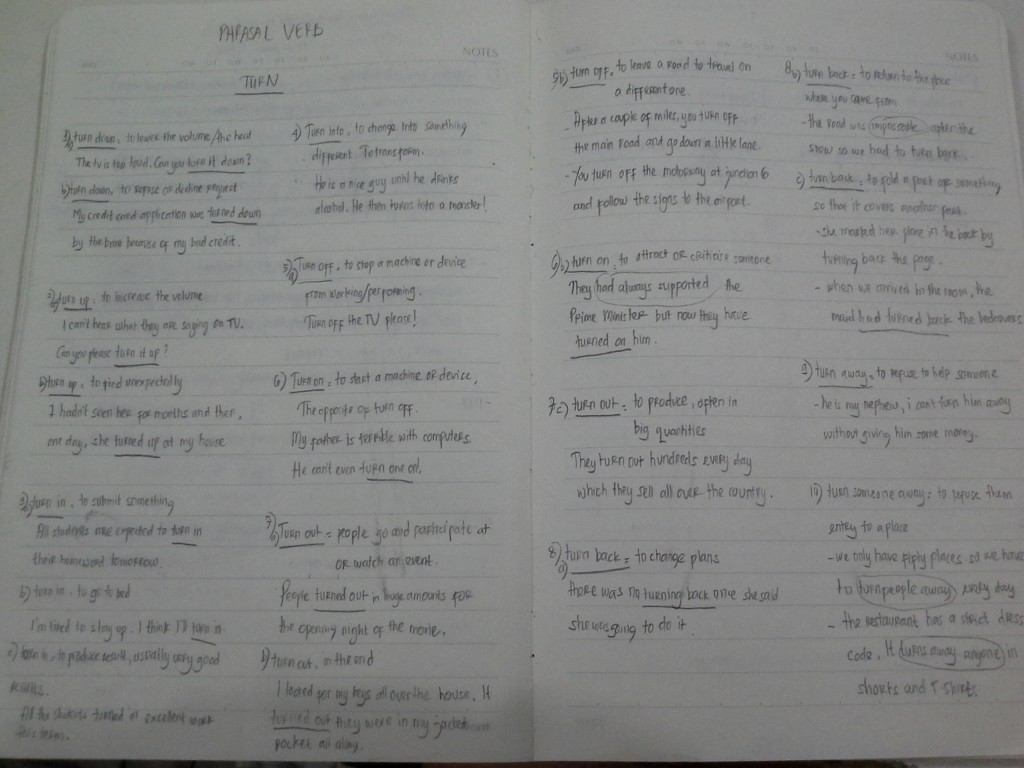 PHRASAL VERB
NOTES
TURN
1) a) turn down, to lower the volume/the heat
The tv is too loud. Can you turn it down?
b) turn down, to refuse or decline request
My credit card application was turned down
by the because of my bad credit.
2) a) turn up : to increase the volume
I can't hear what they are saying on TV.
Can you please turn it up?
b) turn up, to find unexpectedly
I hadn't seen her for months and then,
one day, she turned up at my house
3) a) turn in, to submit something
All students are expected to turn in
their tomorrow.
b) turn in, to go to bed
I'm tired to stay up. I think I'll turn in
c) turn in, to produce result, usually very good
results.
All the students turned in excellent work
this term.
4) Turn into, to change into something
different. Transform.
He is a nice guy until he drinks
alcohol. He then turns into a monster!
5) a) Turn off, to stop a machine or device
from working/performing.
Turn off the TV please!
6) Turn on : to start a machine or device,
The opposite of turn off.
My father is terrible with computers.
He can't even turn one on!
7) Turn out = people go and participate at
or watch an event.
People turned out in huge amounts for
the opening night of the movie.
b) turn out, in the end
I looked for my keys all over the house. It
turned out they were in my jacket
pocket all along.
NOTES
5b) turn off, to leave a road to travel on
a different one.
- After a couple of miles, you turn off
the main road and go down a little lane.
- You turn off the motorway at junction 6
and follow the signs to the airport.
6) b) turn on : to attract or criticise someone
They had always supported the
Prime Minister but now they have
turned on him.
7c) turn out : to produce, often in
big quantities
They turn out hundreds every day
which they sell all over the country.
8) a) turn back = to change plans
there was no turning back once she said
she was going to do it.
8b) turn back = to return to the place
where you came from
- the road was impassable after the
snow so we had to turn back.
c) turn back = to fold a part of something
so that it covers another part.
- she marked her place in the book by
turning back the page.
- when we arrived in the room, the
maid had turned back the bedcovers
9) turn away = to refuse to help someone
- he is my nephew, i cant turn him away
without giving him some money.
10) turn someone away = to refuse them
entry to a place
- we only have fifty places so we have
to turn people away every day
- the restaurant has a strict dress
code. It turns away anyone in
shorts and T-shirt.